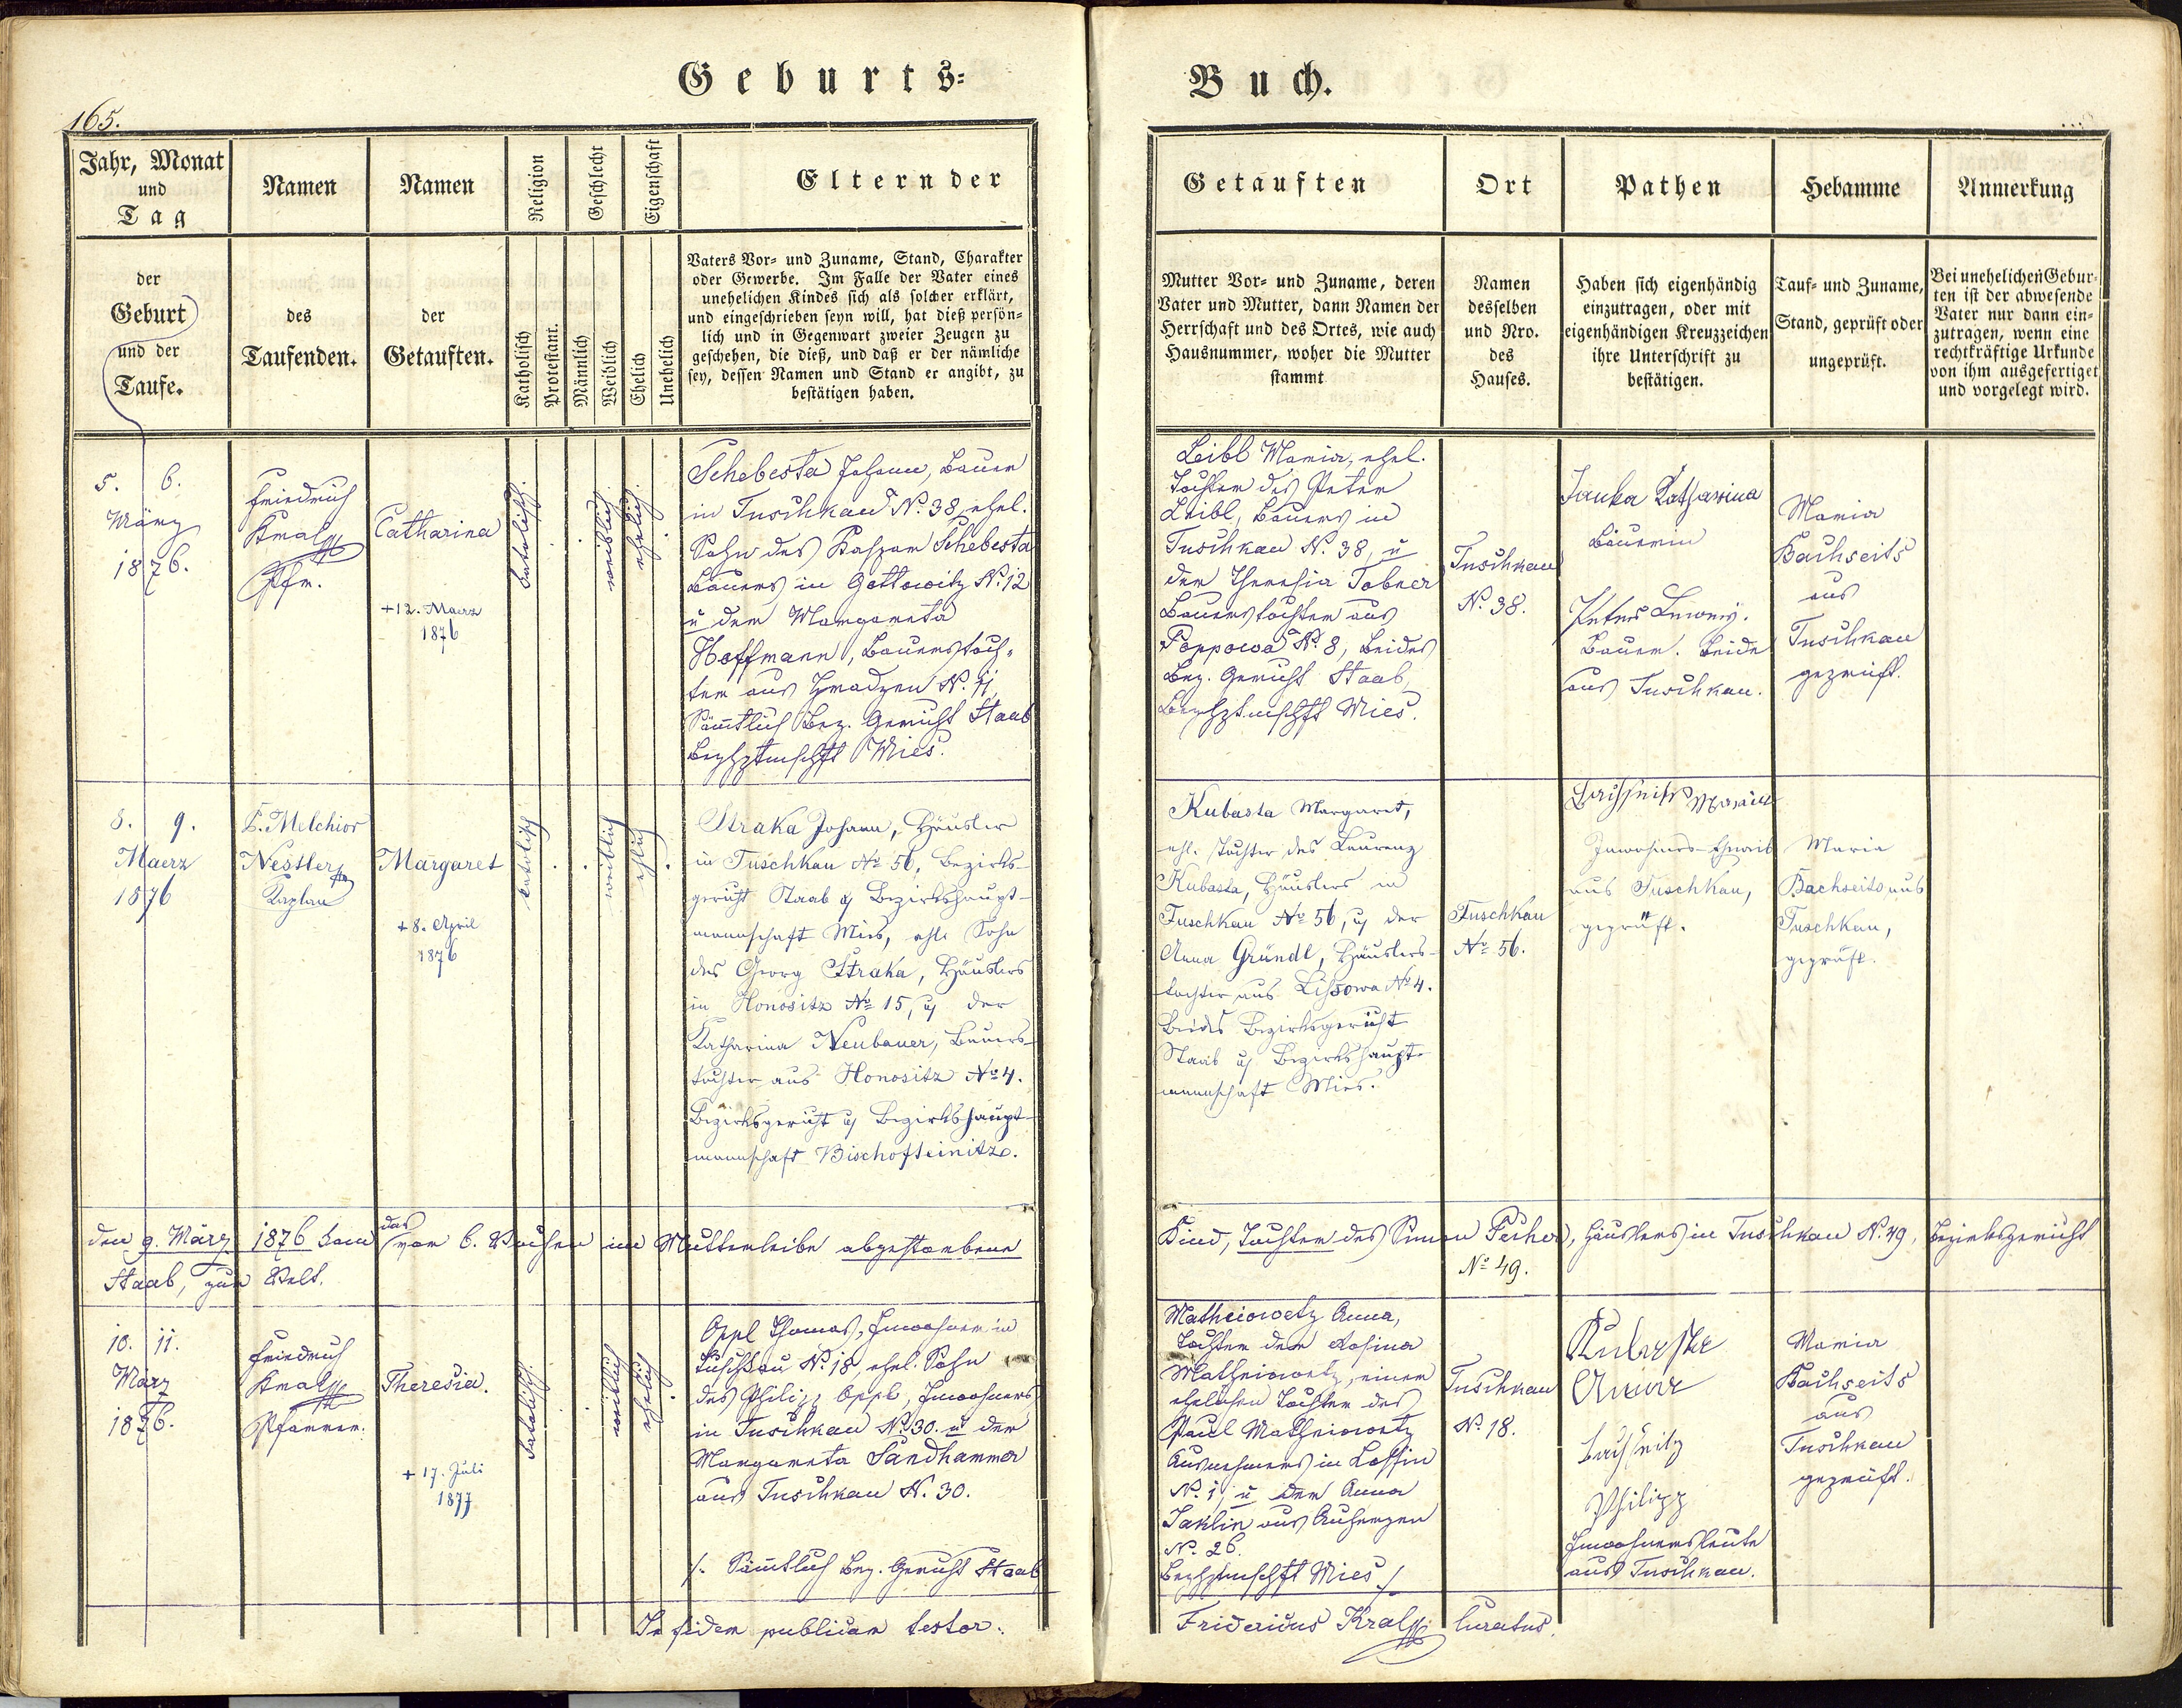 Geburts=
Buch.
165.
Jahr, Monat
und
Tag
der
Geburt
und der
Taufe.
Namen
des
Taufenden.
Namen
der
Getauften.
Religion
Katholisch
Protestant.
Geschlecht
Männlich
Weiblich
Eigenschaft
Ehelich
Unehelich
Eltern der
Vaters Vor= und Zuname, Stand, Charakter
oder Gewerbe. Im Falle der Vater eines
unehelichen Kindes sich als solcher erklärt,
und eingeschrieben seyn will, hat dieß persön=
lich und in Gegenwart zweier Zeugen zu
geschehen, die dieß, und daß er der nämliche
sey, dessen Namen und Stand er angibt, zu
bestätigen haben.
Getauften
Mutter Vor= und Zuname, deren
Vater und Mutter, dann Namen der
Herrschaft und des Ortes, wie auch
Hausnummer, woher die Mutter
stammt
Ort
Namen
desselben
und Nro.
des
Hauses.
Pathen
Haben sich eigenhändig
einzutragen, oder mit
eigenhändigen Kreuzzeichen
ihre Unterschrift zu
bestätigen.
Hebamme
Tauf= und Zuname,
Stand, geprüft oder
ungeprüft.
Anmerkung
Bei unehelichen Gebur=
ten ist der abwesende
Vater nur dann ein=
zutragen, wenn eine
rechtkräftige Urkunde
von ihm ausgefertiget
und vorgelegt wird.
5. 6.
März
1876.
Friedrich
Kral
Pfr.
Catharina
+ 12. Maerz
1876
katolisch.
weiblich.
ehelich.
Schebesta Johann, Bauer
in Tuschkau N. 38, ehel.
Sohn des Kaspar Schebesta
Bauers in Gottowitz N. 12
u der Margareta
Hoffmann, Bauerstoch=
ter aus Hradzen N. 11,
Sämtlich Bez. Gericht Staab
Bezhptmschft Mies.
Leibl Maria, ehel.
Tochter des Peter
Leibl, Bauers in
Tuschkau N. 38, u
der Theresia Tobner
Bauerstochter aus
Poppowa N. 8, Beides
Bez. Gericht Staab,
Bezhptmschft Mies.
Tuschkau
N. 38.
Janka Katharina
Bäuerin
Bauer. Beide
aus Tuschkau.
Maria
Bachseits
aus
Tuschkau
geprüft.
8. 9.
Maerz
1876
P. Melchior
Nestler
Kaplan
Margaret
+ 8. April
1876
katolisch
weiblich
ehlich
Straka Johann, Häusler
in Tuschkau No 56, Bezirks-
gericht Staab u Bezirkshaupt-
mannschaft Mies, ehl. Sohn
des Georg Straka, Häuslers
in Honositz No 15, u der
Katharina Neubauer, Bauers-
tochter aus Honositz No 4.
Bezirksgericht u Bezirkshaupt-
mannschaft Bischofteinitz.
Kubasta Margaret,
ehl. Tochter des Laurenz
Kubasta, Häuslers in
Tuschkau No 56, u der
Anna Gründl, Häuslers-
tochter aus Lissowa No 4.
Beides Bezirksgericht
Staab u Bezirkshaupt-
mannschaft Mies.
Tuschkau
No 56.
Maria
Inwohners-Eheweib
aus Tuschkau,
geprüft.
Maria
Bachseits aus
Tuschkau,
geprüft.
den 9. März 1876 kam das vor 6. Wochen im Mutterleibe abgestorbene
Kind, Tochter des Simon Pecher, Häuslers in Tuschkau N. 49, Bezirksgericht
Staab, zur Welt.
No 49.
10. 11.
März
1876.
Friedrich
Kral
Pfarrer.
Theresia.
+ 17. Juli
1877
katolisch.
weiblich
ehelich
Oppl Thomas, Inwohner in
Tuschkau N. 18, ehel. Sohn
des Philipp Oppl, Inwohners
in Tuschkau N. 30. u der
Margareta Sandhammer
aus Tuschkau N. 30.
/. Sämtlich Bez. Gericht Staab
Matheiowetz Anna,
Tochter der Rosina
Matheiowetz, einer
ehelichen Tochter des
Paul Matheiowetz
Ausnehmers in Lossin
N. 1, u der Anna
Jaklin aus Auherzen
N. 26.
Bezhptmschft Mies /.
Tuschkau
N. 18.
Anna
Philipp
Inwohnersleute
aus Tuschkau.
Maria
Bachseits
aus
Tuschkau
geprüft.
In fidem publicam testor:
Fridericus Kral Curatus.